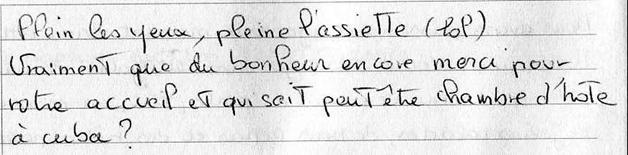 Plein les yeux, pleine l'assiette (top)
Vraiment que du bonheur encore merci pour
votre accueil et qui sait peut être chambre d'hôte
à cuba ?